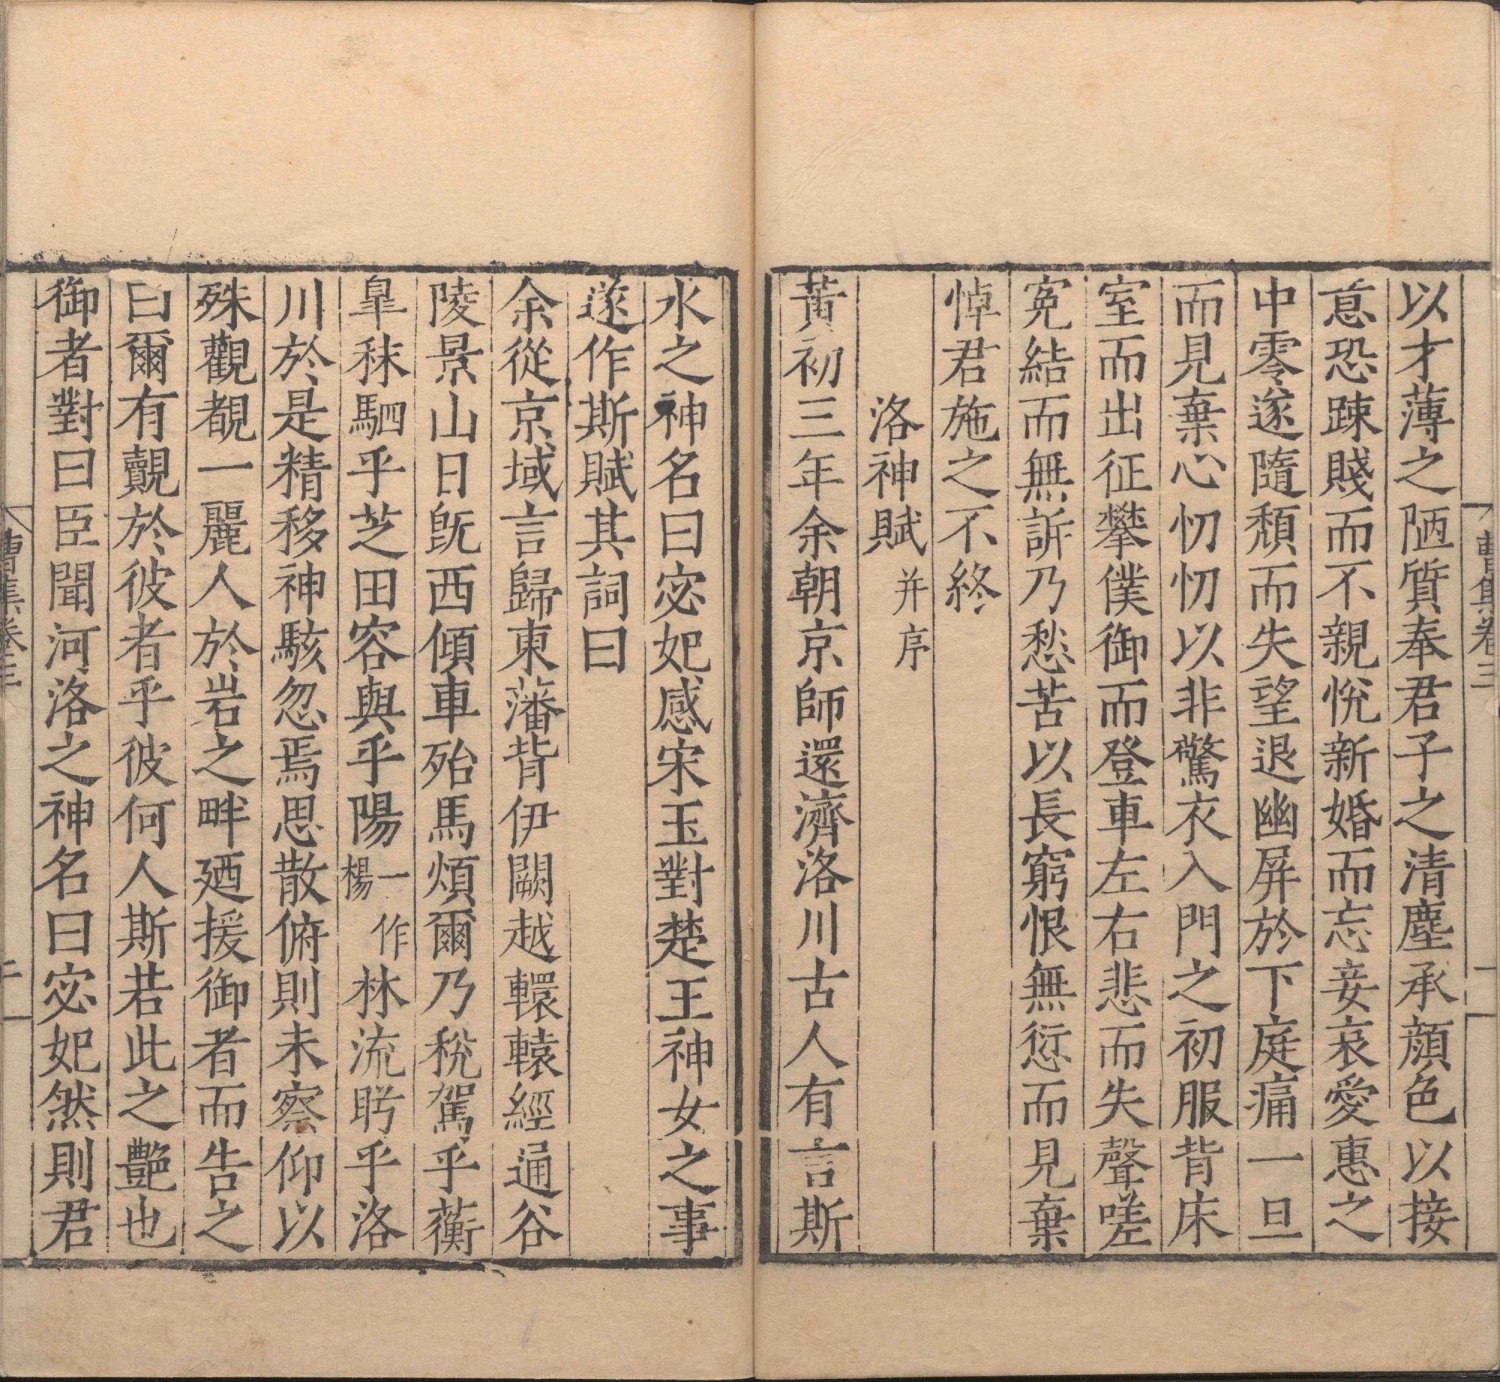 曹集卷三
以才薄之陋質奉君子之清塵承顏色以接
意恐踈賤而不親恱新婚而忘妾哀愛惠之
中零遂隨頹而失望退幽屏於下庭痛一旦
而見棄心忉忉以非驚衣入門之初服背床
室而出征攀僕御而登車左右悲而失聲嗟
冤結而無訴乃愁苦以長窮恨無愆而見棄
悼君施之不終
洛神賦 并序
黃初三年余朝京師還濟洛川古人有言斯
水之神名曰宓妃感宋玉對楚王神女之事
遂作斯賦其詞曰
余從京域言歸東藩背伊闕越轘轅經通谷
陵景山日旣西傾車殆馬煩爾乃稅駕乎蘅
臯秣駟乎芝田容與乎陽一作楊林流眄乎洛
川於是精移神駭忽焉思散俯則未察仰以
殊觀覩一麗人於岩之畔廼援御者而告之
曰爾有覿於彼者乎彼何人斯若此之艶也
御者對曰臣聞河洛之神名曰宓妃然則君
曹集卷三